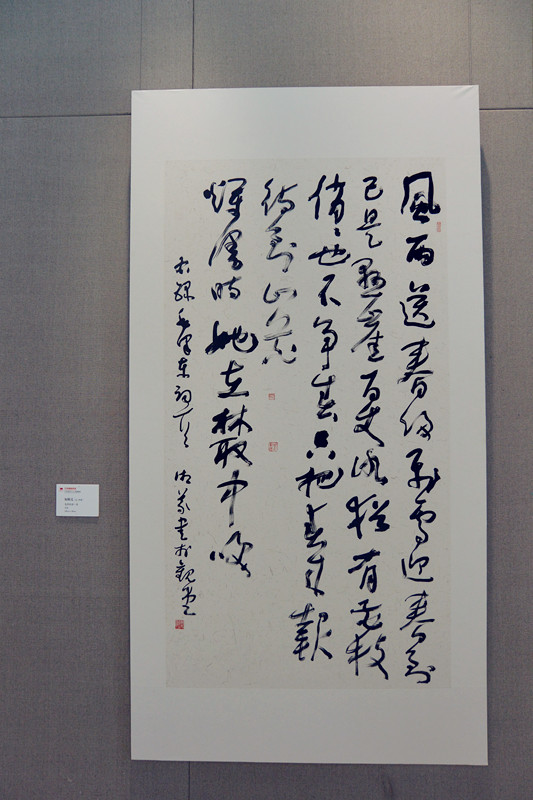 風雨送春歸飛雪迎春到
已是懸崖百丈冰猶有花枝
俏〻也不争春只把春来報
待到山花
爛漫時她在叢中咲
右錄毛澤東詞一首